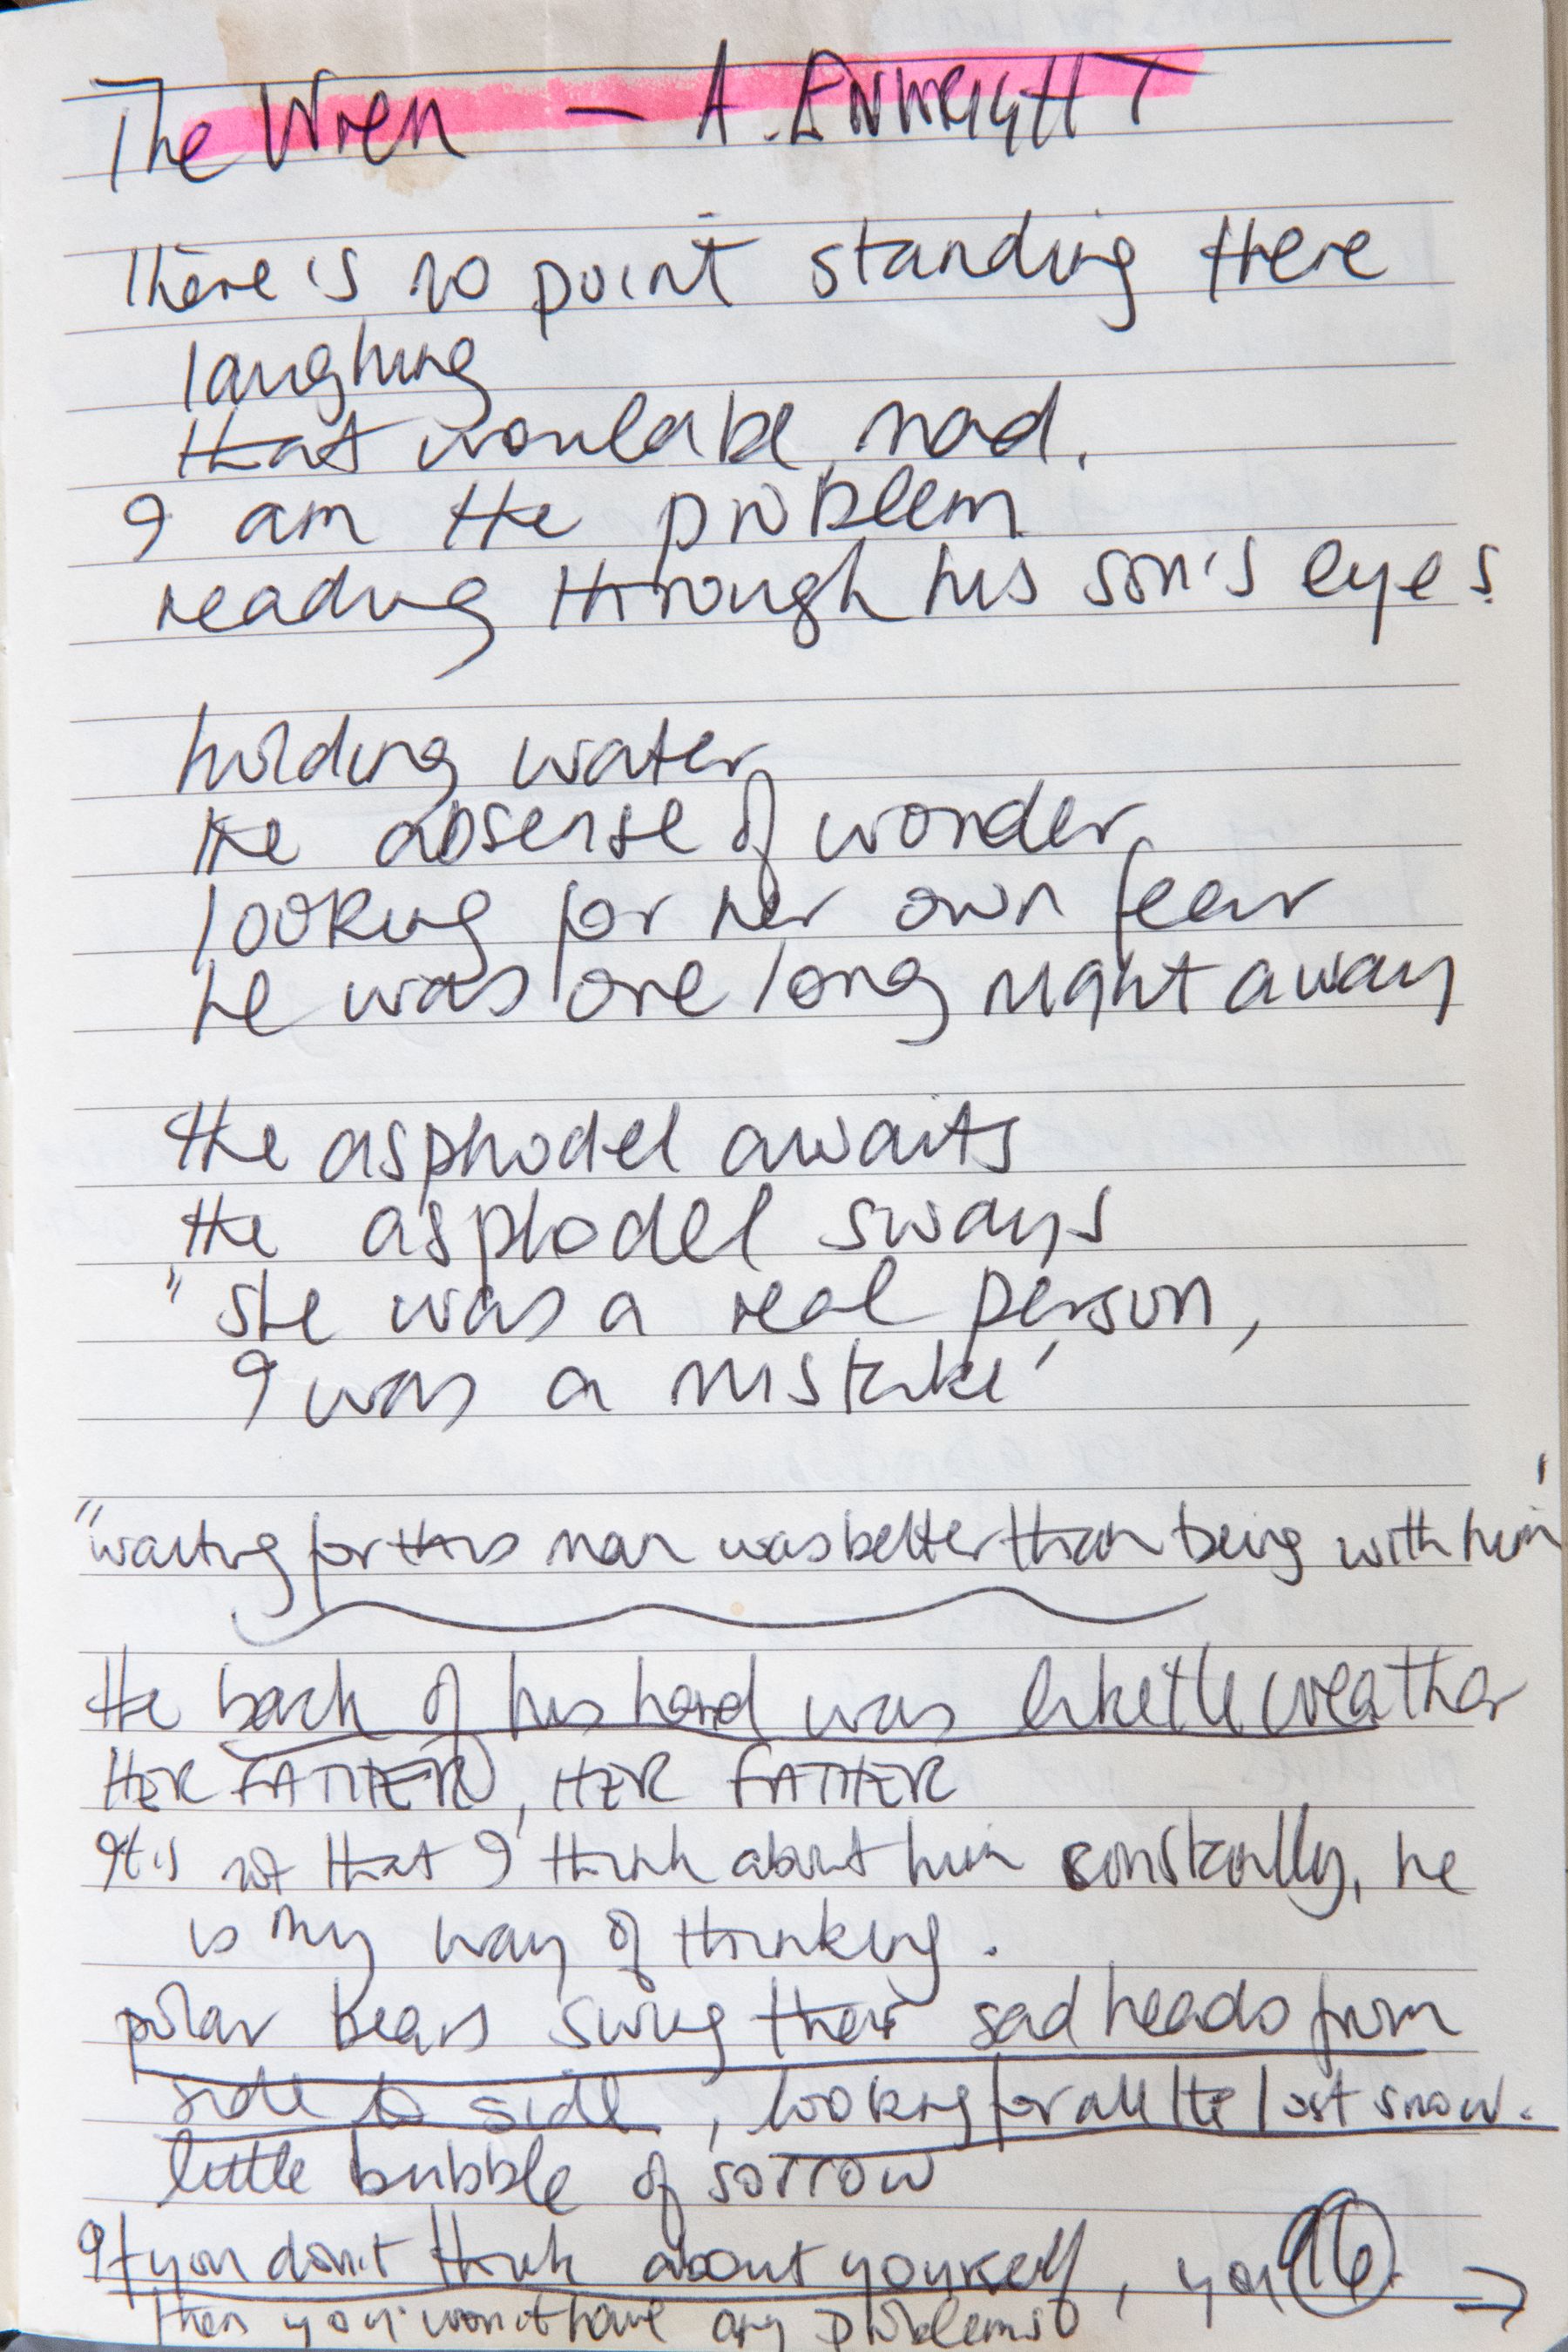 The Wren — A. ENWRIGHT
There is no point standing there
laughing
that would be mad.
I am the problem
reading through his son's eyes.
holding water
the absense of wonder
looking for her own fear
he was one long night away
the asphodel awaits
the asphodel sways
"she was a real person,
I was a mistake'
"waiting for this man was better than being with him'
the back of his hand was like the weather
HER FATHER, HER FATHER
It is not that I think about him constantly, he
is my way of thinking.
polar bears swing their sad heads from
side to side, looking for all the lost snow.
little bubble of sorrow
If you don't think about yourself, you 96. →
then you won't have any problems